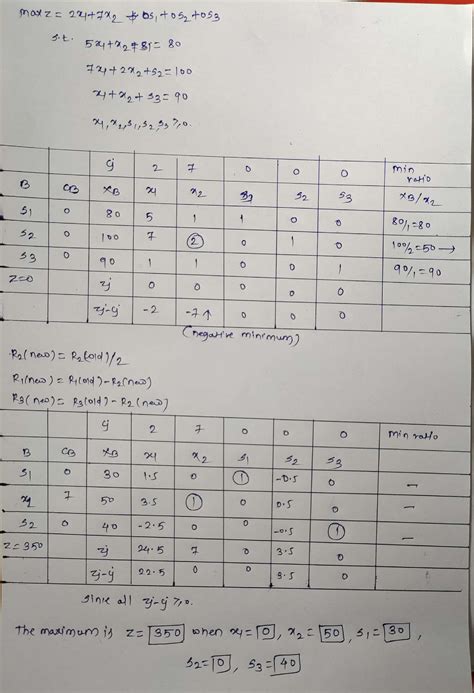 max z = 2x1+7x2 + 0s1+0s2+0s3
s.t. 5x1+x2+s1= 80
7x1+2x2+s2=100
x1+x2+s3=90
x1,x2,s1,s2,s3 ≥0.
Cj 2 7 0 0 0 min ratio
B CB XB x1 x2 s2 s2 s3 XB/x2
s1 0 80 5 1 1 0 0 80/1=80
s2 0 100 7 2 0 1 0 100/2=50 →
s3 0 90 1 1 0 0 1 90/1=90
z=0 zj 0 0 0 0 0
zj-cj -2 -7↑ 0 0 0
(negative minimum)
R2(new)= R2(old)/2
R1(new) = R1(old)-R2(new)
R3(new)= R3(old)-R2(new)
Cj 2 7 0 0 0 min ratio
B CB XB x1 x2 s1 s2 s3
s1 0 30 1.5 0 1 -0.5 0 —
x2 7 50 3.5 1 0 0.5 0 —
s2 0 40 -2.5 0 0 -0.5 1 —
z=350 zj 24.5 7 0 3.5 0
zj-cj 22.5 0 0 3.5 0
since all zj-cj ≥0.
The maximum is z= 350 when x1= 0, x2= 50, s1= 30,
s2= 0, s3= 40